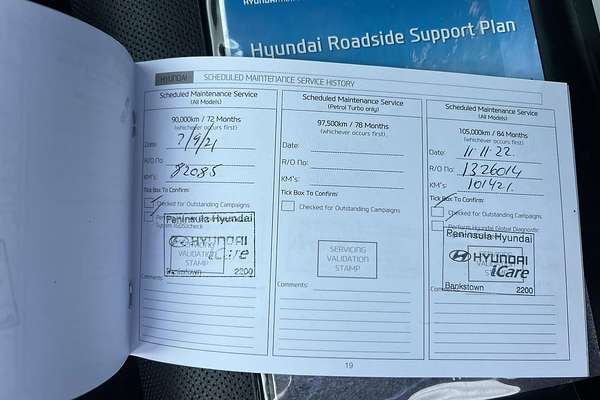 HYUNDAI
Hyundai Roadside Support Plan
HYUNDAI SCHEDULED MAINTENANCE SERVICE HISTORY
Scheduled Maintenance Service
(All Models)
90,000km / 72 Months
(whichever occurs first)
Date: 7/9/21
R/O No:
KM's: 82085
Tick Box To Confirm:
Checked for Outstanding Campaigns
Peninsula Hyundai
HYUNDAI
iCare
SERVICING
VALIDATION
STAMP
Bankstown 2200
Comments:
Scheduled Maintenance Service
(Petrol Turbo only)
97,500km / 78 Months
(whichever occurs first)
Date:
R/O No:
KM's:
Tick Box To Confirm:
Checked for Outstanding Campaigns
SERVICING
VALIDATION
STAMP
Comments:
Scheduled Maintenance Service
(All Models)
105,000km / 84 Months
(whichever occurs first)
Date: 11.11.22
R/O No: 1326014
KM's: 101421.
Tick Box To Confirm:
Checked for Outstanding Campaigns
Perform Hyundai Global Diagnostic
Peninsula Hyundai
HYUNDAI
iCare
Bankstown 2200
Comments:
19